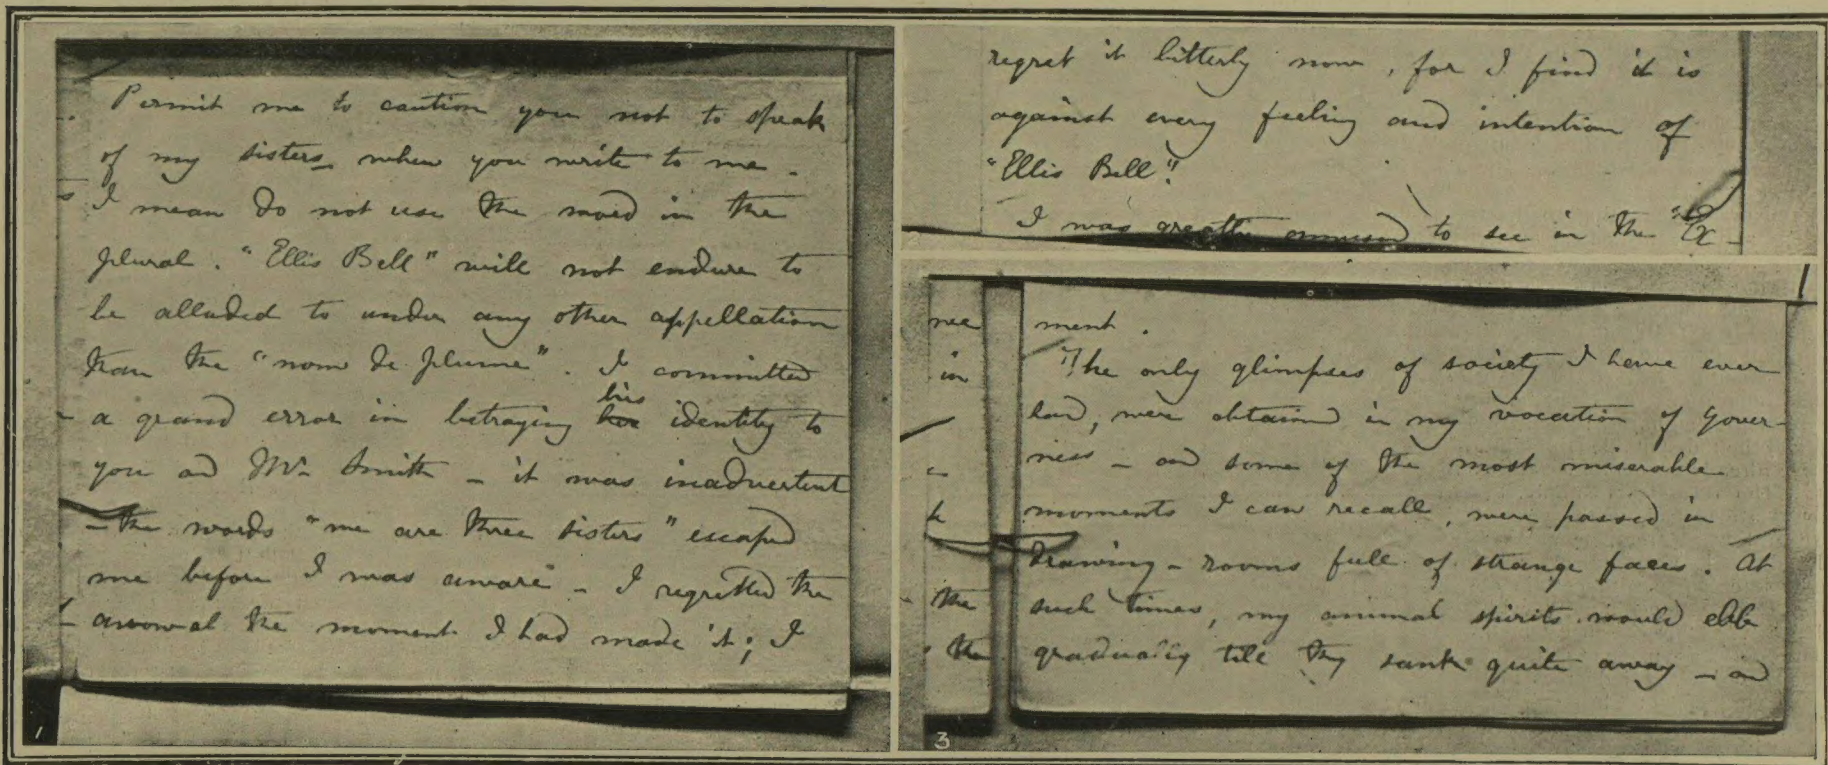 Permit me to caution you not to speak
of my sisters when you write to me.
I mean do not use the word in the
plural. "Ellis Bell" will not endure to
be alluded to under any other appellation
than the "nom de plume". I committed
a grand error in betraying ~~her~~ his identity to
you and Mr. Smith – it was inadvertent
– the words "we are three sisters" escaped
me before I was aware – I regretted the
avowal the moment I had made it; I
1
regret it bitterly now, for I find it is
against every feeling and intention of
"Ellis Bell".
I was greatly amused to see in the "Ex-
ment.
The only glimpses of society I have ever
had, were obtained in my vocation of Gover-
ness – and some of the most miserable
moments I can recall, were passed in
drawing-rooms full of strange faces. At
such times, my animal spirits would ebb
gradually till they sank quite away – and
in
the
the
3